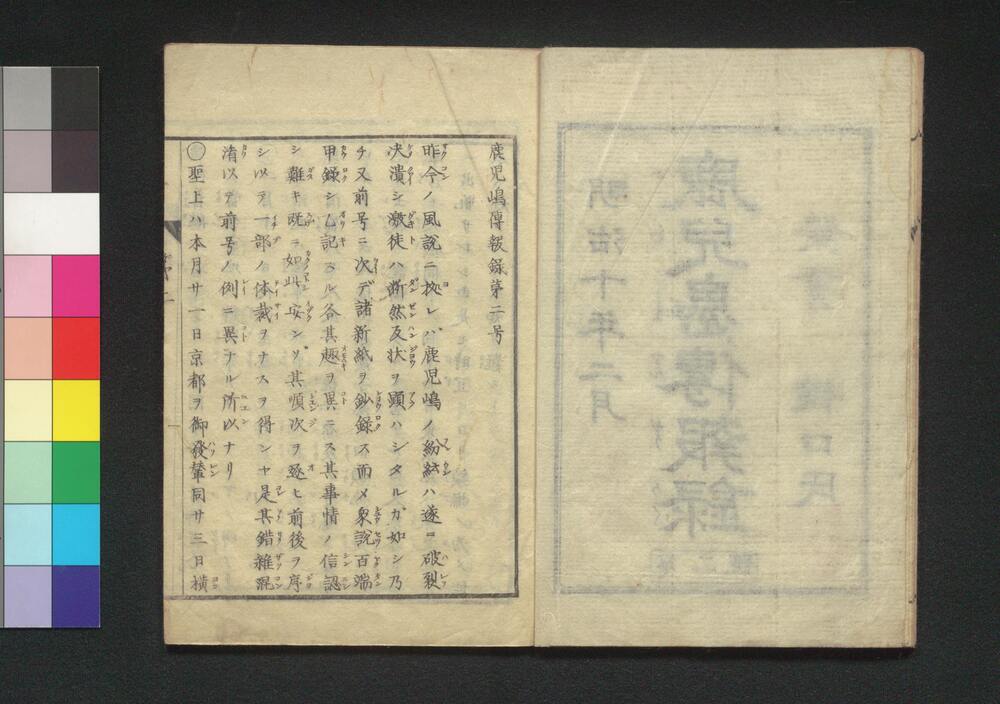 鹿児嶋傳報録第二号
昨今ノ風説ニ拠レバ鹿児嶋ノ紛紜ハ遂ニ破裂
决潰シ激徒ハ断然反状ヲ顕ハシタルガ如シ乃
チ又前号ニ次デ諸新紙ヲ鈔録ス而メ衆説百端
甲録シ乙記スル各其趣ヲ異ニス其事情ノ信認
シ難キ既ヲ如此安ンゾ其順次ヲ逐ヒ前後ヲ序
シ以テ一部ノ体裁ヲナスヲ得ンヤ是其錯雑混
淆以テ前号ノ例ニ異ナル所以ナリ
〇聖上ハ本月廿一日京都ヲ御發輦同廿三日横
明治十年二月
鹿児島傳報録